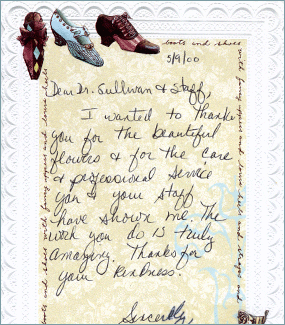 boots and shoes
with fancy
5/9/00
Dear Dr. Sullivan & Staff,
I wanted to thank
you for the beautiful
flowers & for the care
& professional service
you & your staff
have shown me. The
work you do is truly
amazing. Thanks for
your kindness.
Sincerely,